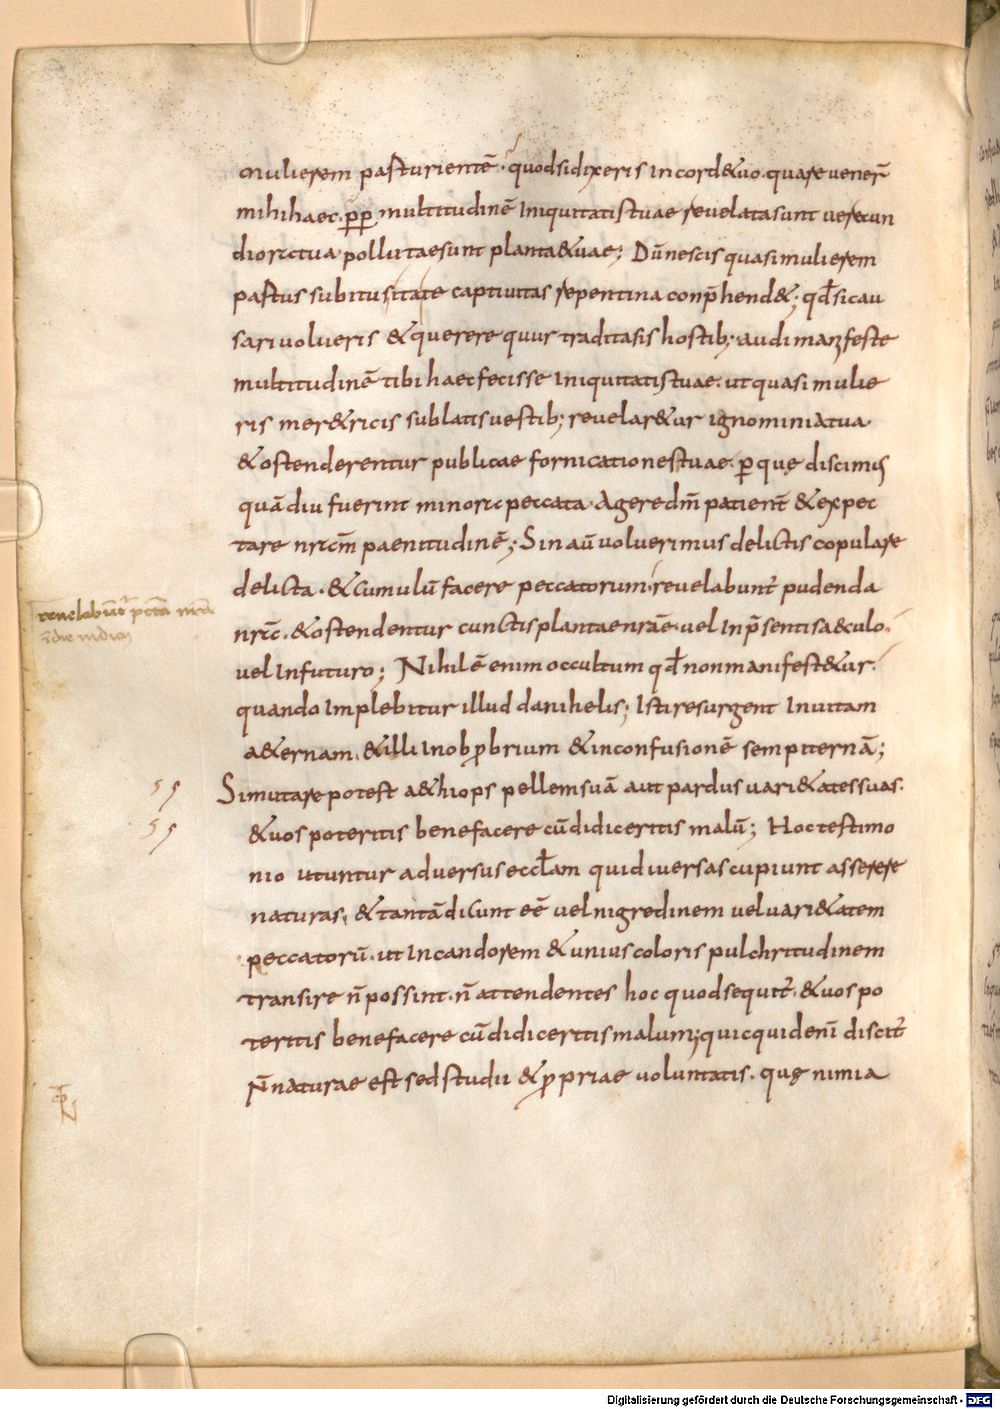 mulierem parturientē. quodsidixeris incord&uo. quare venerт̄
mihihaec. ꝓꝑ multitudinē iniquitatistuae revelatasunt verecun
diorατua. pollutaesunt planta&uae; Dūnescis quasimulierem
partus subitusitate captivitas repentina conp̄hend&; qđsicau
sarivolveris &querere quur traditasis hostib; audi manifeste
multitudinē tibi haecfecisse iniquitatistuae. ut quasi mulie
ris mer&ricis sublatisvestib; revelar&ur ignominiatua
&ostenderentur publicae fornicationestuae. ꝑ quę discimus
quādiu fuerint minora peccata. Agere dm̄ patient̄ &expec
tare nrαm̄ paenitudinē; Sin aū voluerimus delictis copulare
delicta. &cumulū facere peccatorum. revelabunt̄ pudenda
nr̄α. &ostendentur cunctis plantaenrāe. vel inp̄sentisa&culo.
vel infuturo; Nihilē enim occultum qđ nonmanifest&ur.
quando implebitur illud danihelis; isti resurgent invitam
a&ernam. &illi inobꝓbrium &inconfusionē sempiternā;
Simutare potest a&hiops pellemsuā aut pardus vari&atessuas.
&vos poteritis benefacere cūdidiceritis malū; Hoc testimo
nio utuntur adversus eccl̄am quidiversas cupiunt asserere
naturas. &tantādicunt eē vel nigredinem velvari&atem
peccatorū. ut incandorem &unius coloris pulchritudinem
transire n̄ possint. n̄ attendentes hoc quod sequit̄. &vos po
teritis benefacere cūdidiceritis malum; quicquidenī discit̄
N̄naturae est sed studii &ꝓpriae voluntatis. quę nimia